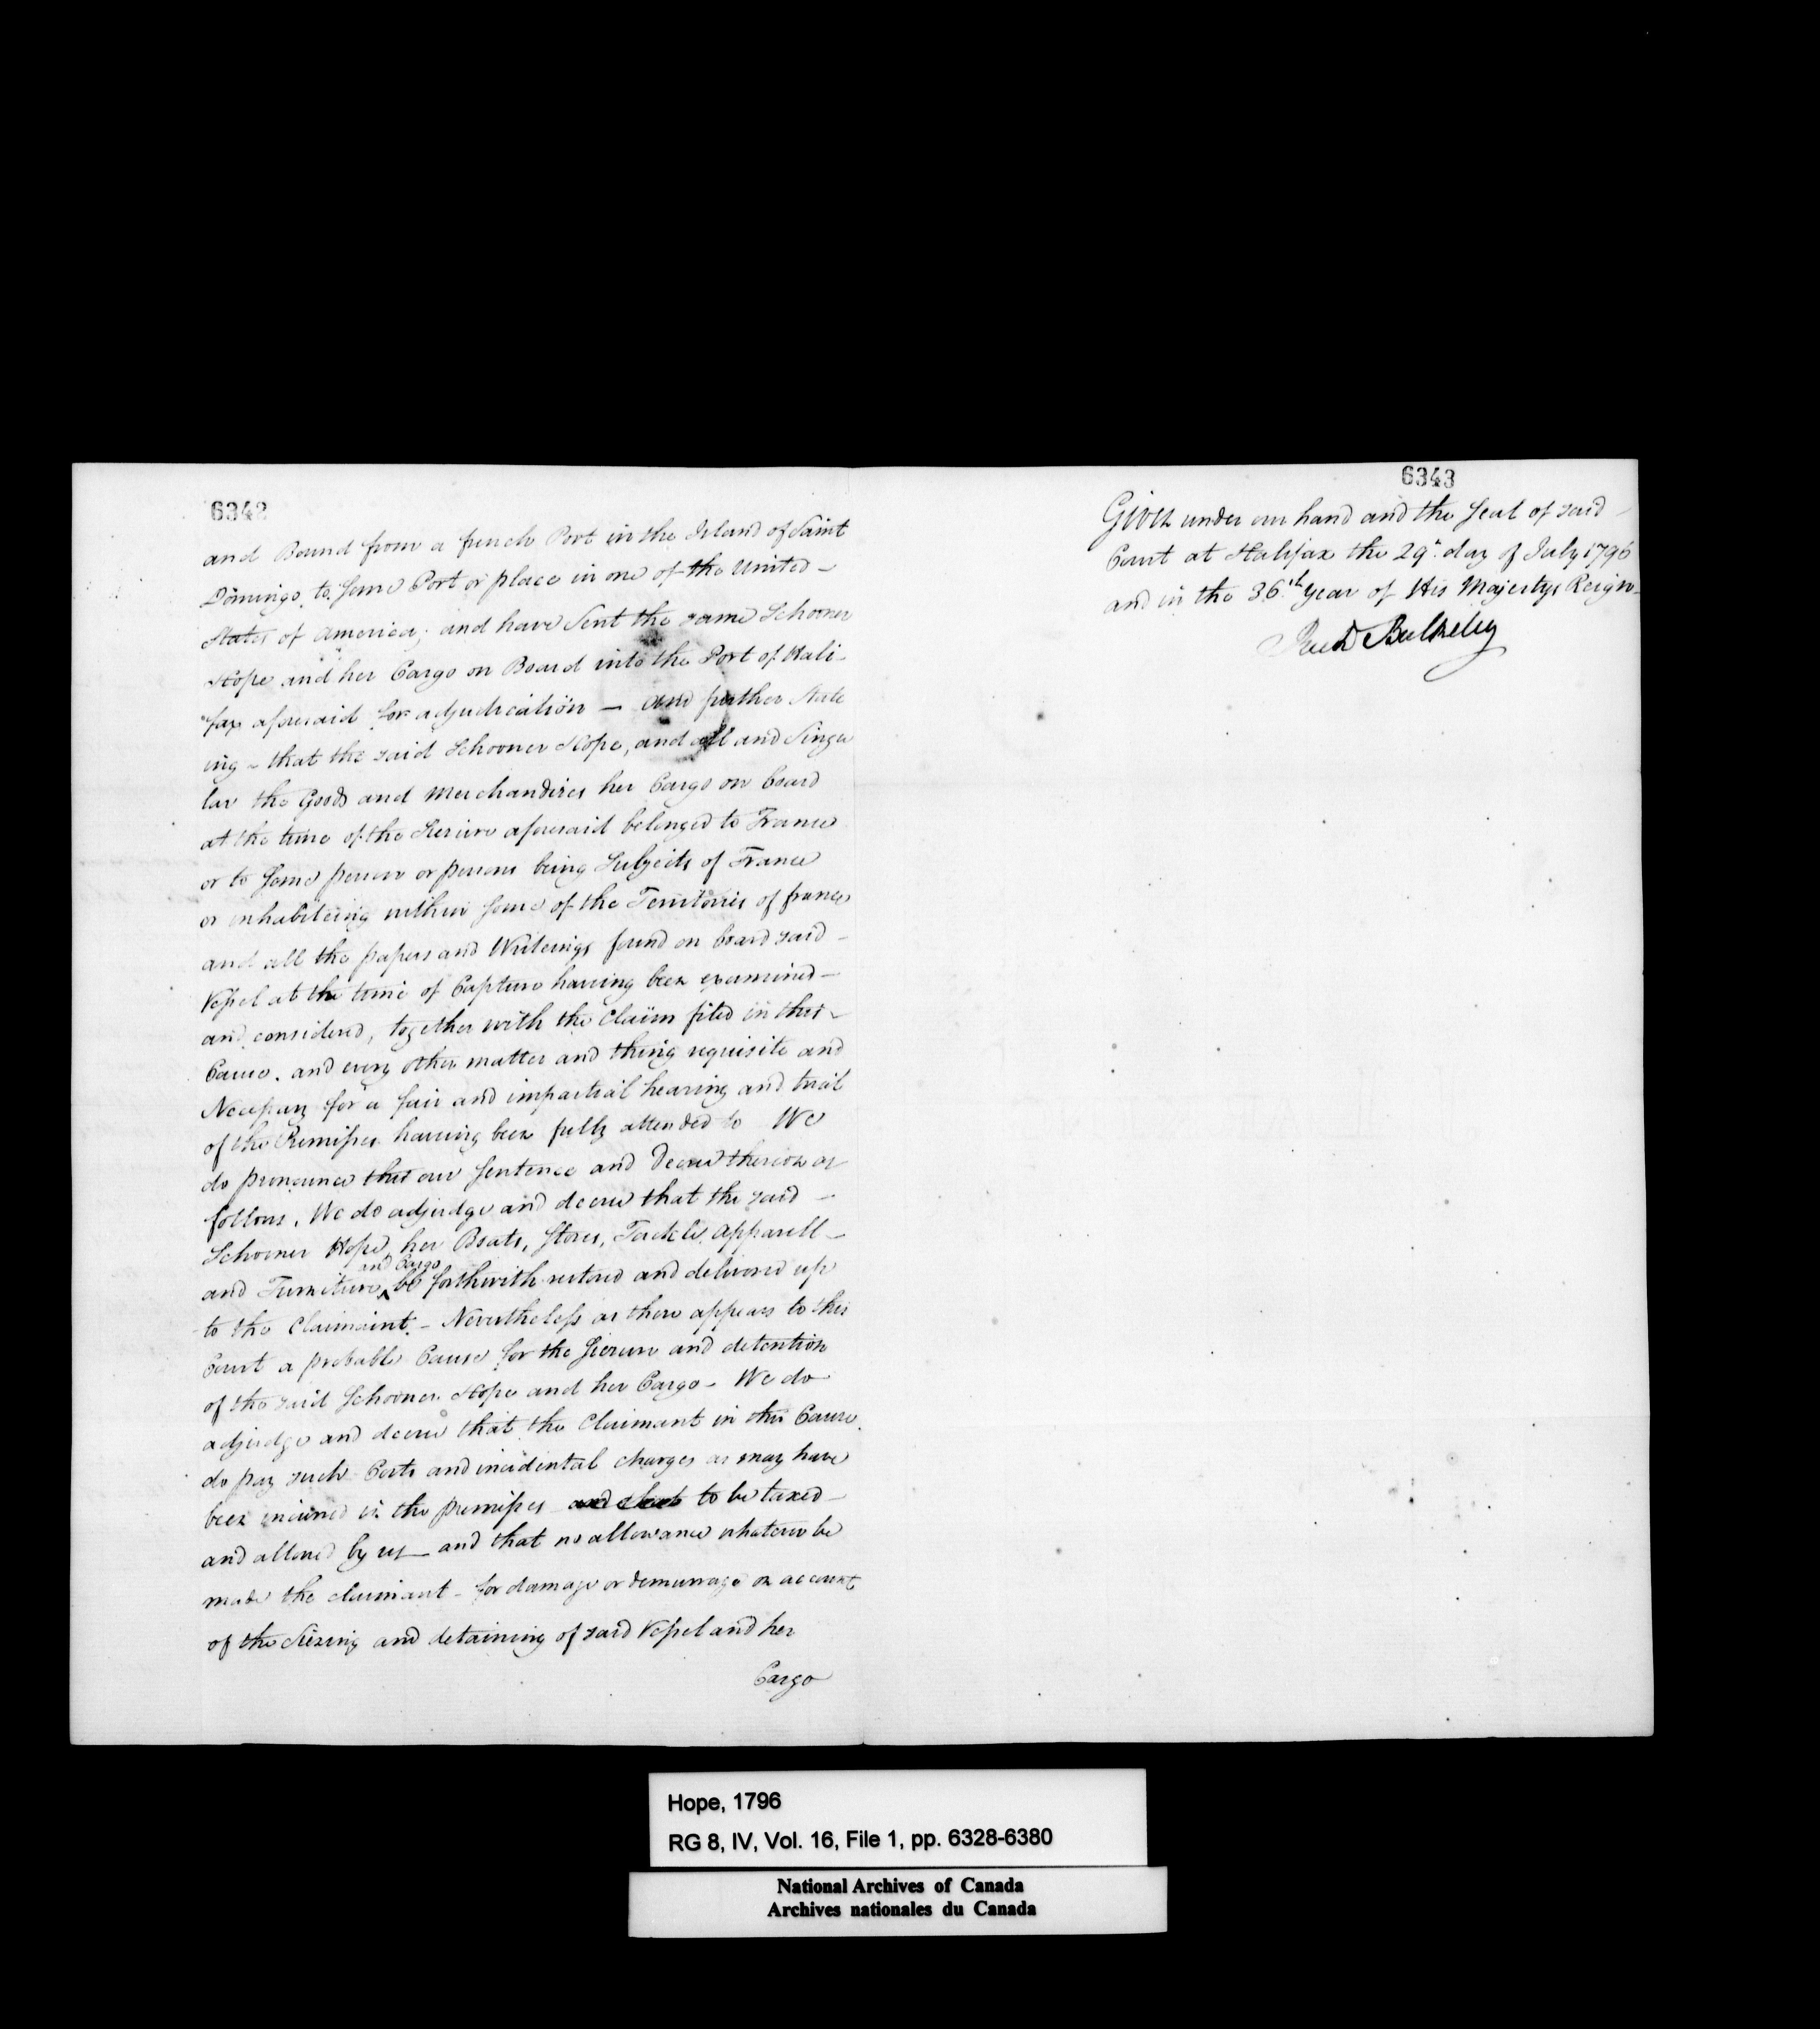 6342
and Bound from a french Port in the Island of Saint
Domingo, to Some Port or place in one of the United –
States of America; and have Sent the same Schooner
Hope and her Cargo on Board into the Port of Hali-
fax aforesaid for adjudication – and further State
ing – that the said Schooner Hope, and all and Singu
lar the Goods and Merchandizes her Cargo on board
at the time of the Seizure aforesaid belonged to France
or to Some person or persons being Subjects of France
or inhabiteing within Some of the Territories of france
and all the papers and Writeings found on board said –
Vessel at the time of Capture having been examined –
and considered, together with the Claim filed in this –
Cause. and every other matter and thing requisite and
Necessary for a fair and impartial hearing and trial
of the Premisses having been fully attended to We
do pronounce this our Sentence and Decree thereon as
follows. We do adjudge and decree that the said –
Schooner Hope, her Boats, Stores, Tackle, Apparell –
and Cargo
and Furniture ‸ be forthwith restored and delivered up
to the Claimaint. – Nevertheless as there appears to this
Court a probable Cause for the Siezure and detention
of the said Schooner Hope and her Cargo – We do
adjudge and decree that the Claimant in this Cause
do pay such Costs and incidental charges as may have
been incurred in the premisses to be taxed –
and allowed by us – and that no allowance whatever be
made the claimant – for damage or demurrage on account
of the Siezing and detaining of said Vessel and her
Cargo
6343
Given under our hand and the Seal of said –
Court at Halifax the 29th day of July 1796
and in the 36th year of His Majestys Reign –
Richd Bulkeley
Hope, 1796
RG 8, IV, Vol. 16, File 1, pp. 6328-6380
National Archives of Canada
Archives nationales du Canada